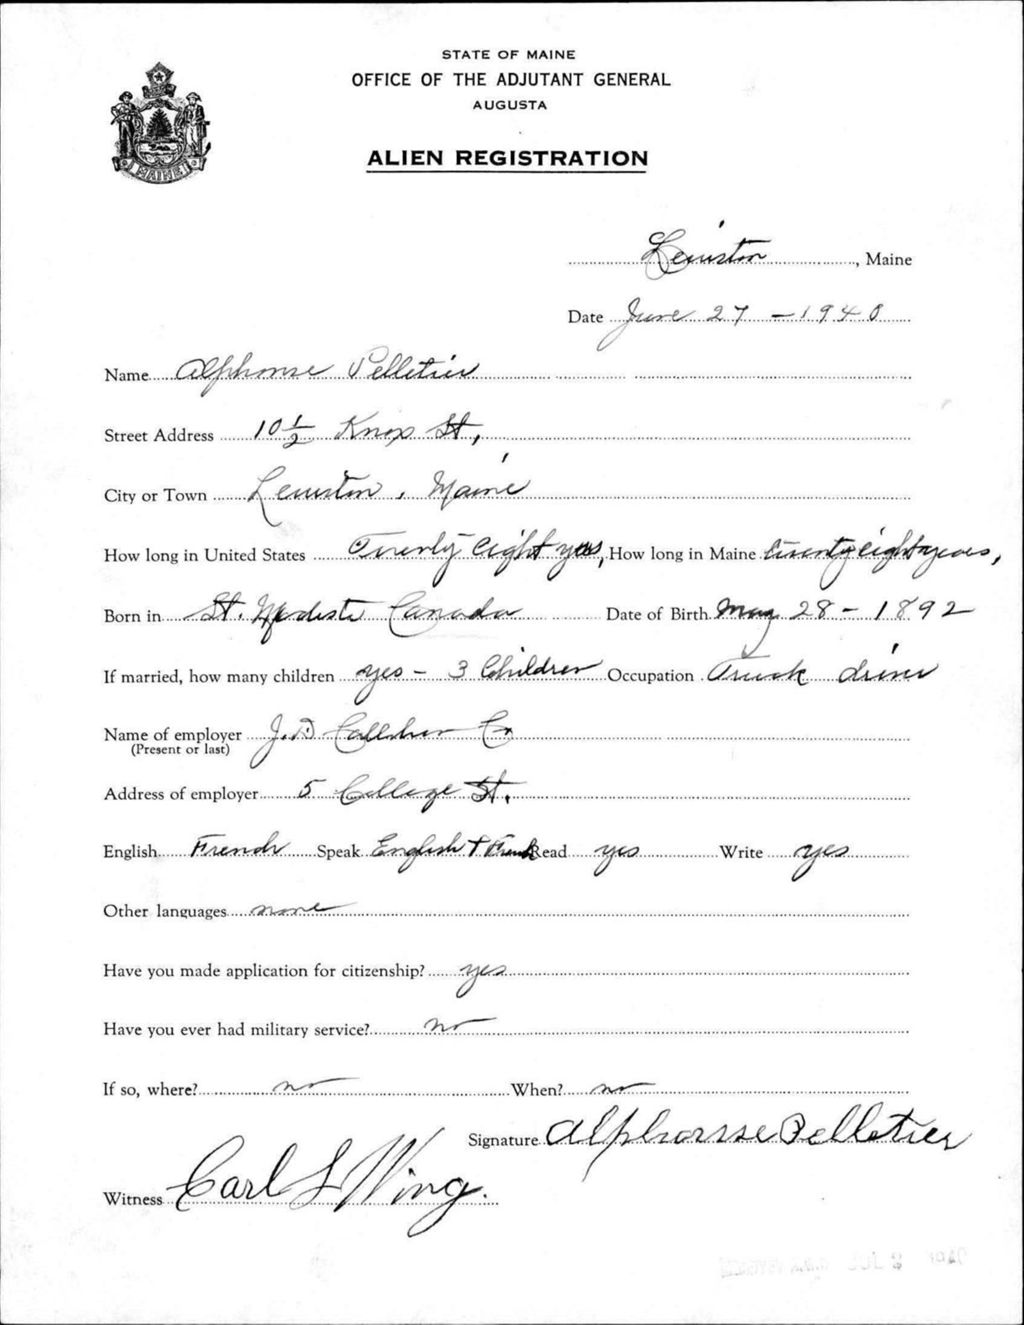 STATE OF MAINE
OFFICE OF THE ADJUTANT GENERAL
AUGUSTA
ALIEN REGISTRATION
MAINE
Lewiston, Maine
Date June 27 - 1940
Name Alphonse Pelletier
Street Address 10 1/2 Knox St,
City or Town Lewiston, Maine
How long in United States Twenty eight yrs, How long in Maine twenty eight years,
Born in St. Modeste Canada Date of Birth May 28 - 1892
If married, how many children yes - 3 Children Occupation Truck driver
Name of employer J.D. Callahan Co
(Present or last)
Address of employer 5 College St.
English French Speak English + French Read yes Write yes
Other languages none
Have you made application for citizenship? yes
Have you ever had military service? no
If so, where? no When? no
Signature Alphonse Pelletier
Witness Carl L Wing.